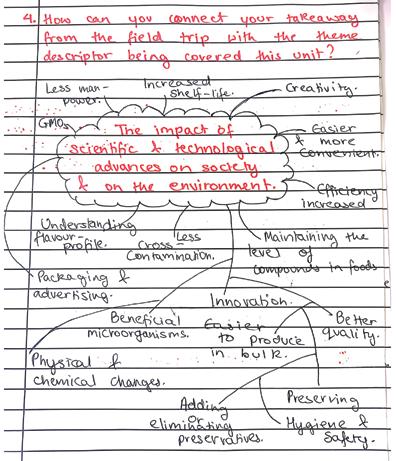 4. How can you connect your takeaway
from the field trip with the theme
descriptor being covered this unit?
Less man-
power.
Increased
shelf-life.
Creativity.
GMOs
The impact of
scientific & technological
advances on society
& on the environment.
Easier
& more
convenient.
Efficiency
increased
Understanding
flavour-
profile.
Less
Cross-
Contamination.
Maintaining the
level of
compounds in foods
Packaging &
advertising.
Innovation.
Beneficial
microorganisms.
Easier
to produce
in bulk.
Better
quality.
Physical &
chemical changes.
Adding
or
eliminating
preservatives.
Preserving
Hygiene &
Safety.